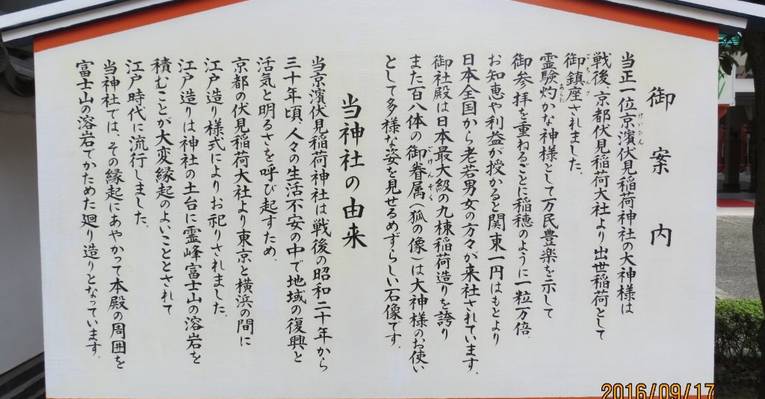 御案内
当正一位京濱伏見稲荷神社の大神様は
けいひん
戦後、京都伏見稲荷大社より出世稲荷として
御鎮座されました。
霊験灼かな神様として万民豊楽を示して
あらた
御参拝を重ねるごとに稲穂のように一粒万倍
お知恵や利益が授かると関東一円はもとより
日本全国から老若男女の方々が来社されています。
御社殿は日本最大級の九棟稲荷造りを誇り
また百八体の御眷属(狐の像)は大神様のお使い
ごけんぞく
として多様な姿を見せるめずらしい石像です。
当神社の由来
当京濱伏見稲荷神社は戦後の昭和二十年から
三十年頃、人々の生活不安の中で地域の復興と
活気と明るさを呼び起すため、
京都の伏見稲荷大社より東京と横浜の間に
江戸造り様式によりお祀りされました。
江戸造りは神社の土台に霊峰富士山の溶岩を
積むことが大変縁起のよいこととされて
江戸時代に流行しました。
当神社では、その縁起にあやかって本殿の周囲を
富士山の溶岩でかためた廻り造りとなっています。
2016/09/17